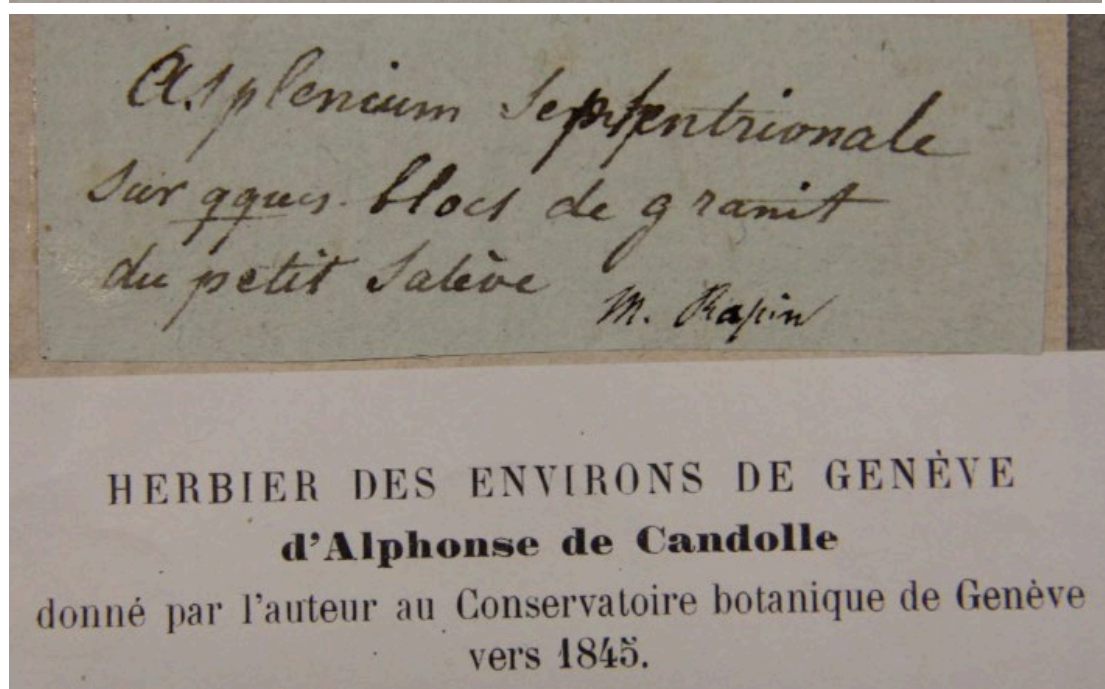 Asplenium septentrionale
sur qques. blocs de granit
du petit Salève
M. Rapin
HERBIER DES ENVIRONS DE GENÈVE
d'Alphonse de Candolle
donné par l'auteur au Conservatoire botanique de Genève
vers 1845.